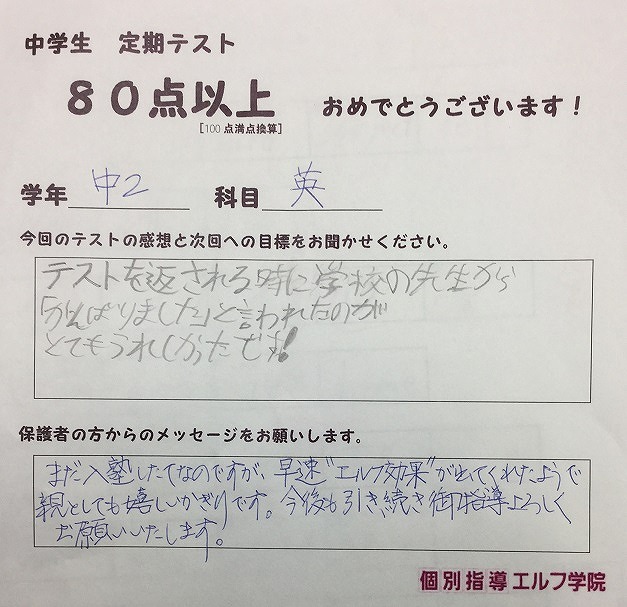 中学生 定期テスト
80点以上 おめでとうございます！
[100点満点換算]
学年 中2 科目 英
今回のテストの感想と次回への目標をお聞かせください。
テストを返される時に学校の先生から
「がんばりました」と言われたのが
とてもうれしかったです!
保護者の方からのメッセージをお願いします。
まだ入塾したてなのですが、早速"エルフ効果"が出てくれたようで
親としても嬉しいかぎりです。今後も引き続き御指導よろしく
お願いいたします。
個別指導エルフ学院